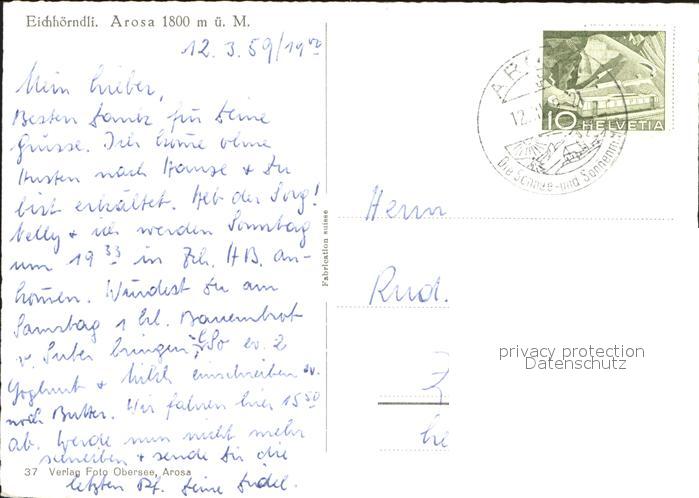 Eichhörndli. Arosa 1800 m ü. M.
12. 3. 59/19⁰⁰
Mein Lieber,
Besten Dank für Deine
Grüsse. Ich komme ohne
Husten nach Hause & Du
bist erkältet. Heb der Sorg!
Nelly & ich werden Sonntag
um 19³³ in Zch. HB. an-
kommen. Würdest Du am
Samstag 1 kl. Bauernbrot
v. Suter bringen & So ev. 2
Yoghurt & Milch einschreiben ev.
noch Butter. Wir fahren hier 15⁵⁰
ab. Werde nun nicht mehr
schreiben & sende Dir die
letzten Deine
37 Verlag Foto Obersee, Arosa
Fabrication suisse
10 HELVETIA
AROSA
12.
Die Schnee- und Sonnen
Herrn
Rud.
privacy protection
Datenschutz